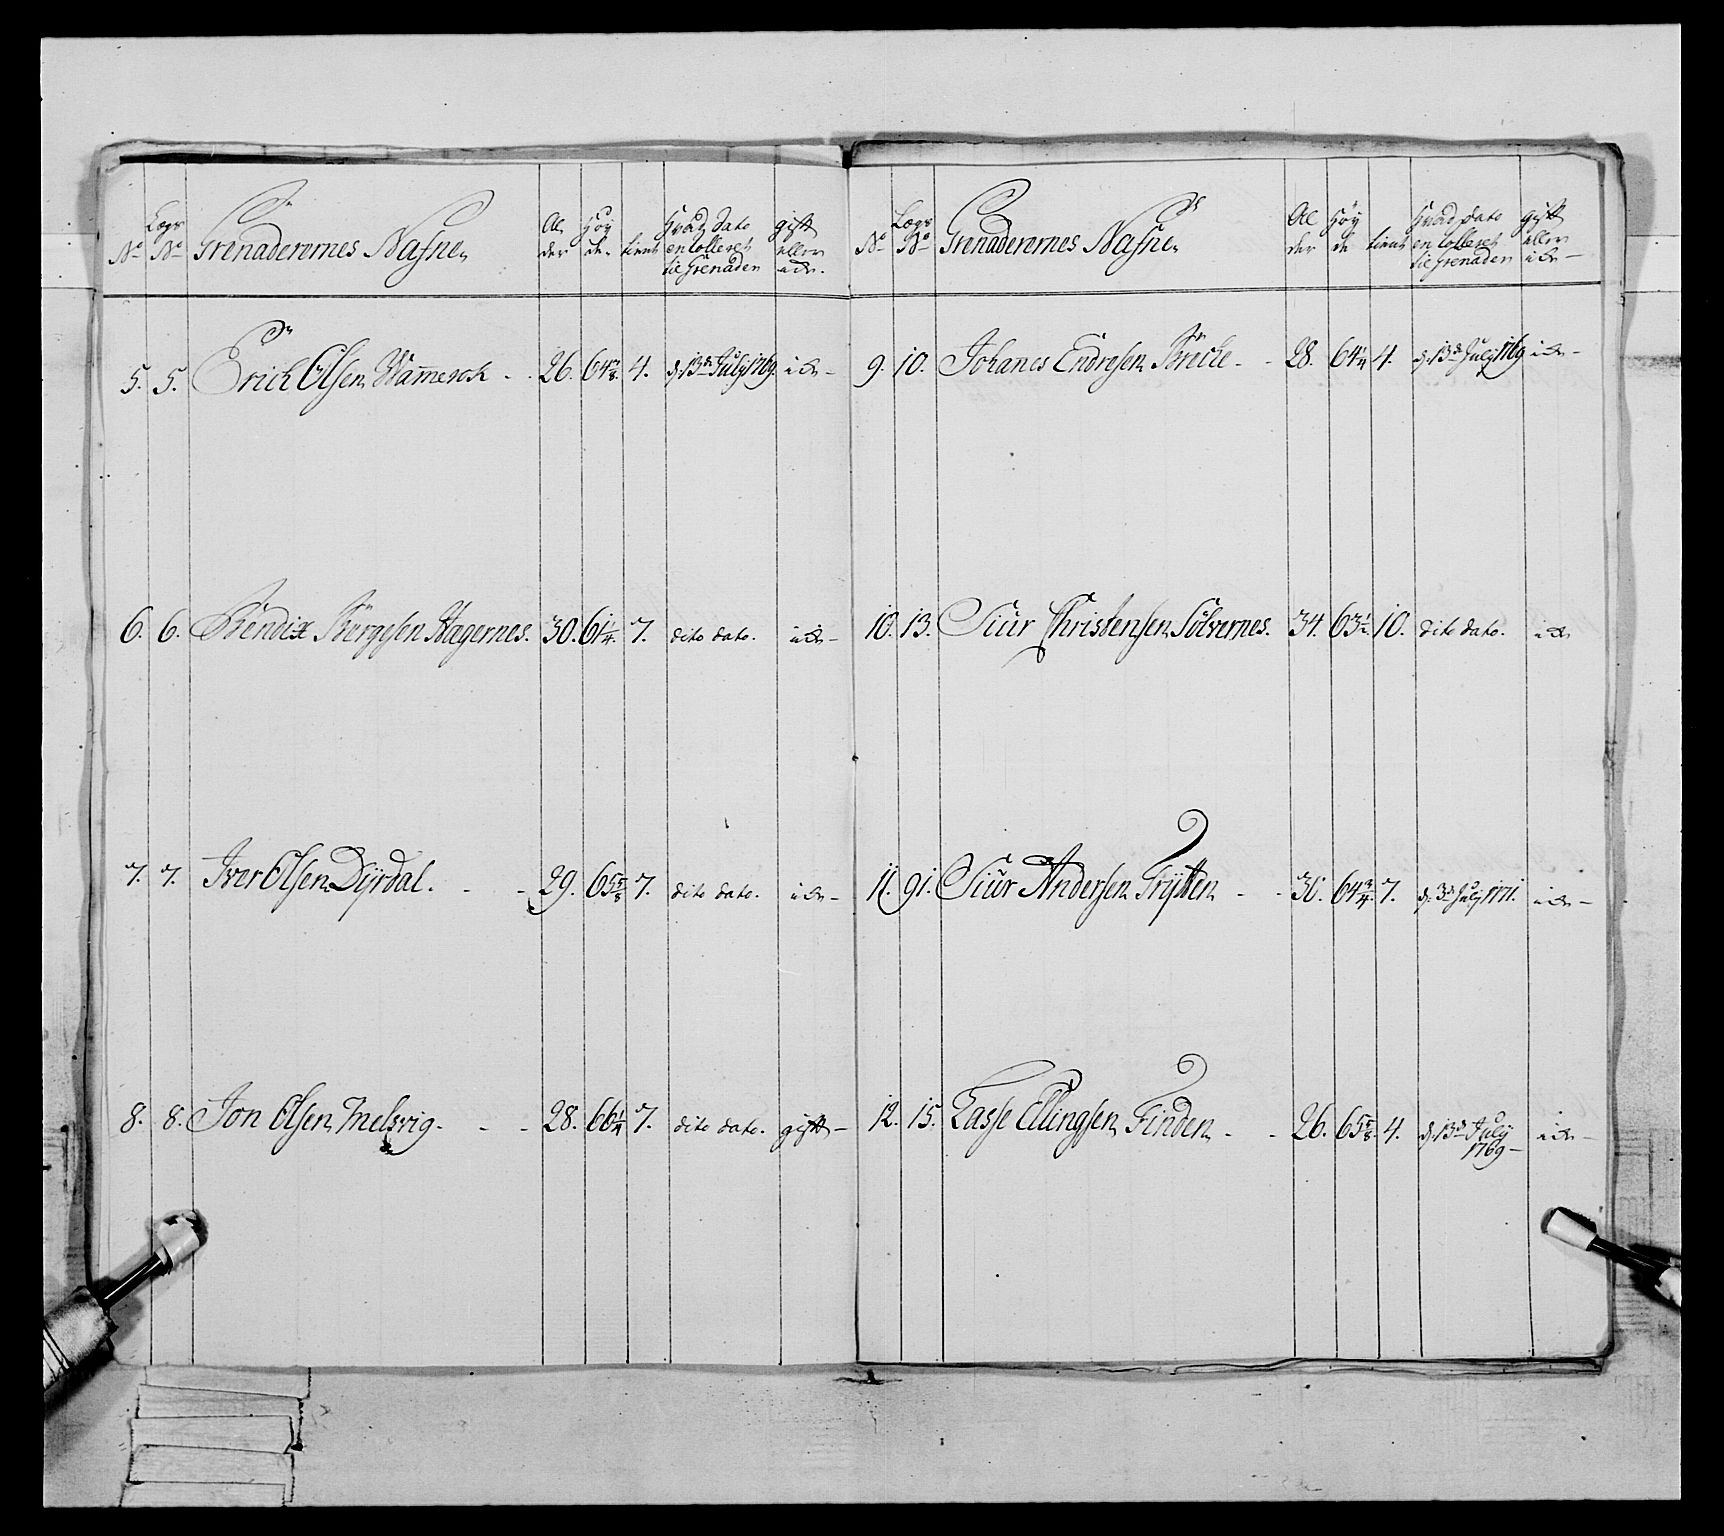 No Lægs No Grenaderernes Nafne Alder Høyde tient hvad dato enrolleret til Grenadeer gift eller icke
5. 5. Erich Olsen 26. 64 4. d. 13de July 1769. icke
6. 6. Bendix Børgesen Hagernes. 30. 61 1/4. 7. dito dato. icke
7. 7. Iver Olsen Dÿrdal. 29. 65 5/8 7. dito dato. icke
8. 8. Jon Olsen Melsvig. 28. 66 1/4 7. dito dato. gift
No Lægs No Grenaderernes Nafne Alder Høyde tient hvad dato enrolleret til Grenadeer gift eller icke
9. 10. Johanes Endresen Brecke 28. 64 1/4 4. d. 13de July 1769 icke
10. 13. Siur Christensen Sölvernes. 34. 63 1/2 10. dito dato. icke
11. 91. Siur Andersen Trÿtten 30. 64 3/4 7. d. 3de July 1771. icke
12. 15. Lasse Ellingsen Finden 26. 65 5/8 4. d. 13de July
1769 icke